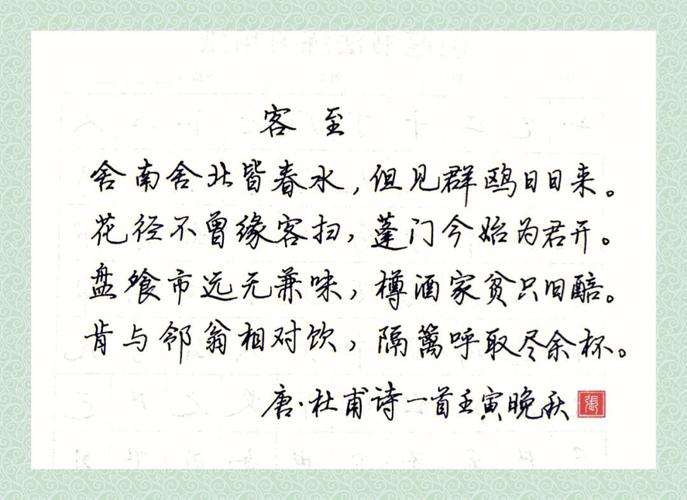 客至
舍南舍北皆春水,但见群鸥日日来。
花径不曾缘客扫,蓬门今始为君开。
盘飧市远无兼味,樽酒家贫只旧醅。
肯与邻翁相对饮,隔篱呼取尽余杯。
唐·杜甫诗一首壬寅晚秋 張